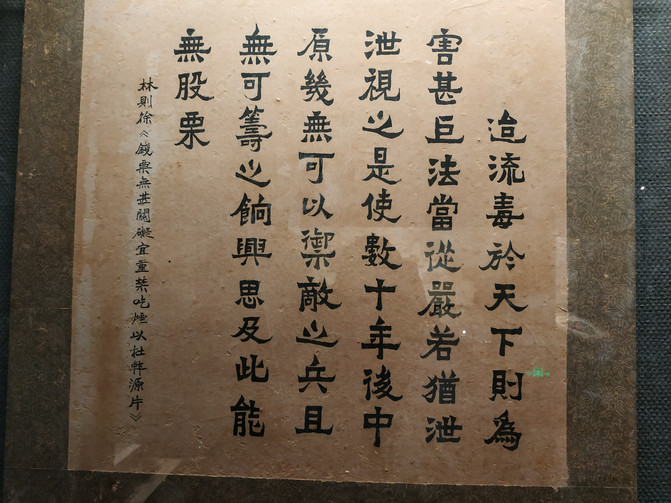 迨流毒於天下則為
害甚巨法當從嚴若猶泄
泄視之是使數十年後中
原幾無可以禦敵之兵且
無可籌之餉興思及此能
無股栗
林則徐《錢票無甚關礙宜重禁吃煙以杜弊源片》